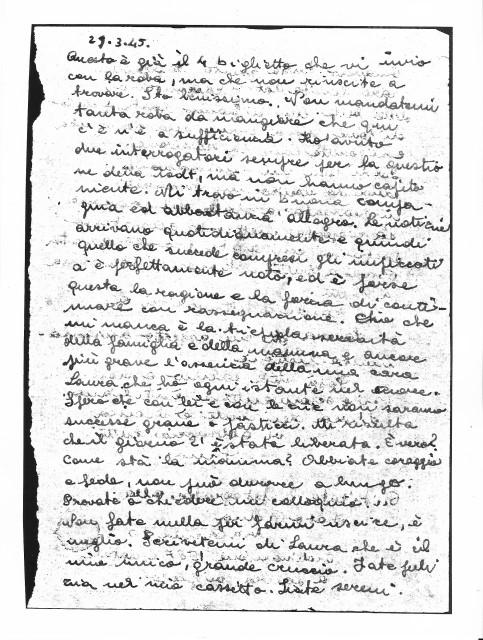 29.3.45.
Questo è già il 4 biglietto che vi invio
con la roba, ma che non riuscite a
trovare. Sto benissimo. Non mandatemi
tanta roba da mangiare che qui
c'è n'è a sufficienza. Ho avuto
due interrogatori sempre per la questio
ne della Todt, ma non hanno capito
niente. Mi trovo in buona compa-
gnia ed abbastanza allegro. Le notizie
arrivano quotidianamente e quindi
quello che succede compresi gli impiccati
ci è perfettamente noto, ed è forse
questa la ragione e la forza di conti-
nuare con rassegnazione. Ciò che
mi manca è la serenità
della famiglia e della mamma e ancora
più grave l'assenza della mia cara
Laura che ho ogni istante nel cuore.
Spero che con lei e con le zie non saranno
successe grane o pasticci. Mi risulta
che il giorno 21 è stata liberata. È vero?
Come stà la mamma? Abbiate coraggio
e fede, non può durare a lungo.
Provate a chiedere un colloquio ...
Non fate nulla per farmi uscire, è
meglio. Scrivetemi di Laura che è il
mio unico, grande cruccio. Fate puli
zia nel mio cassetto. State sereni.